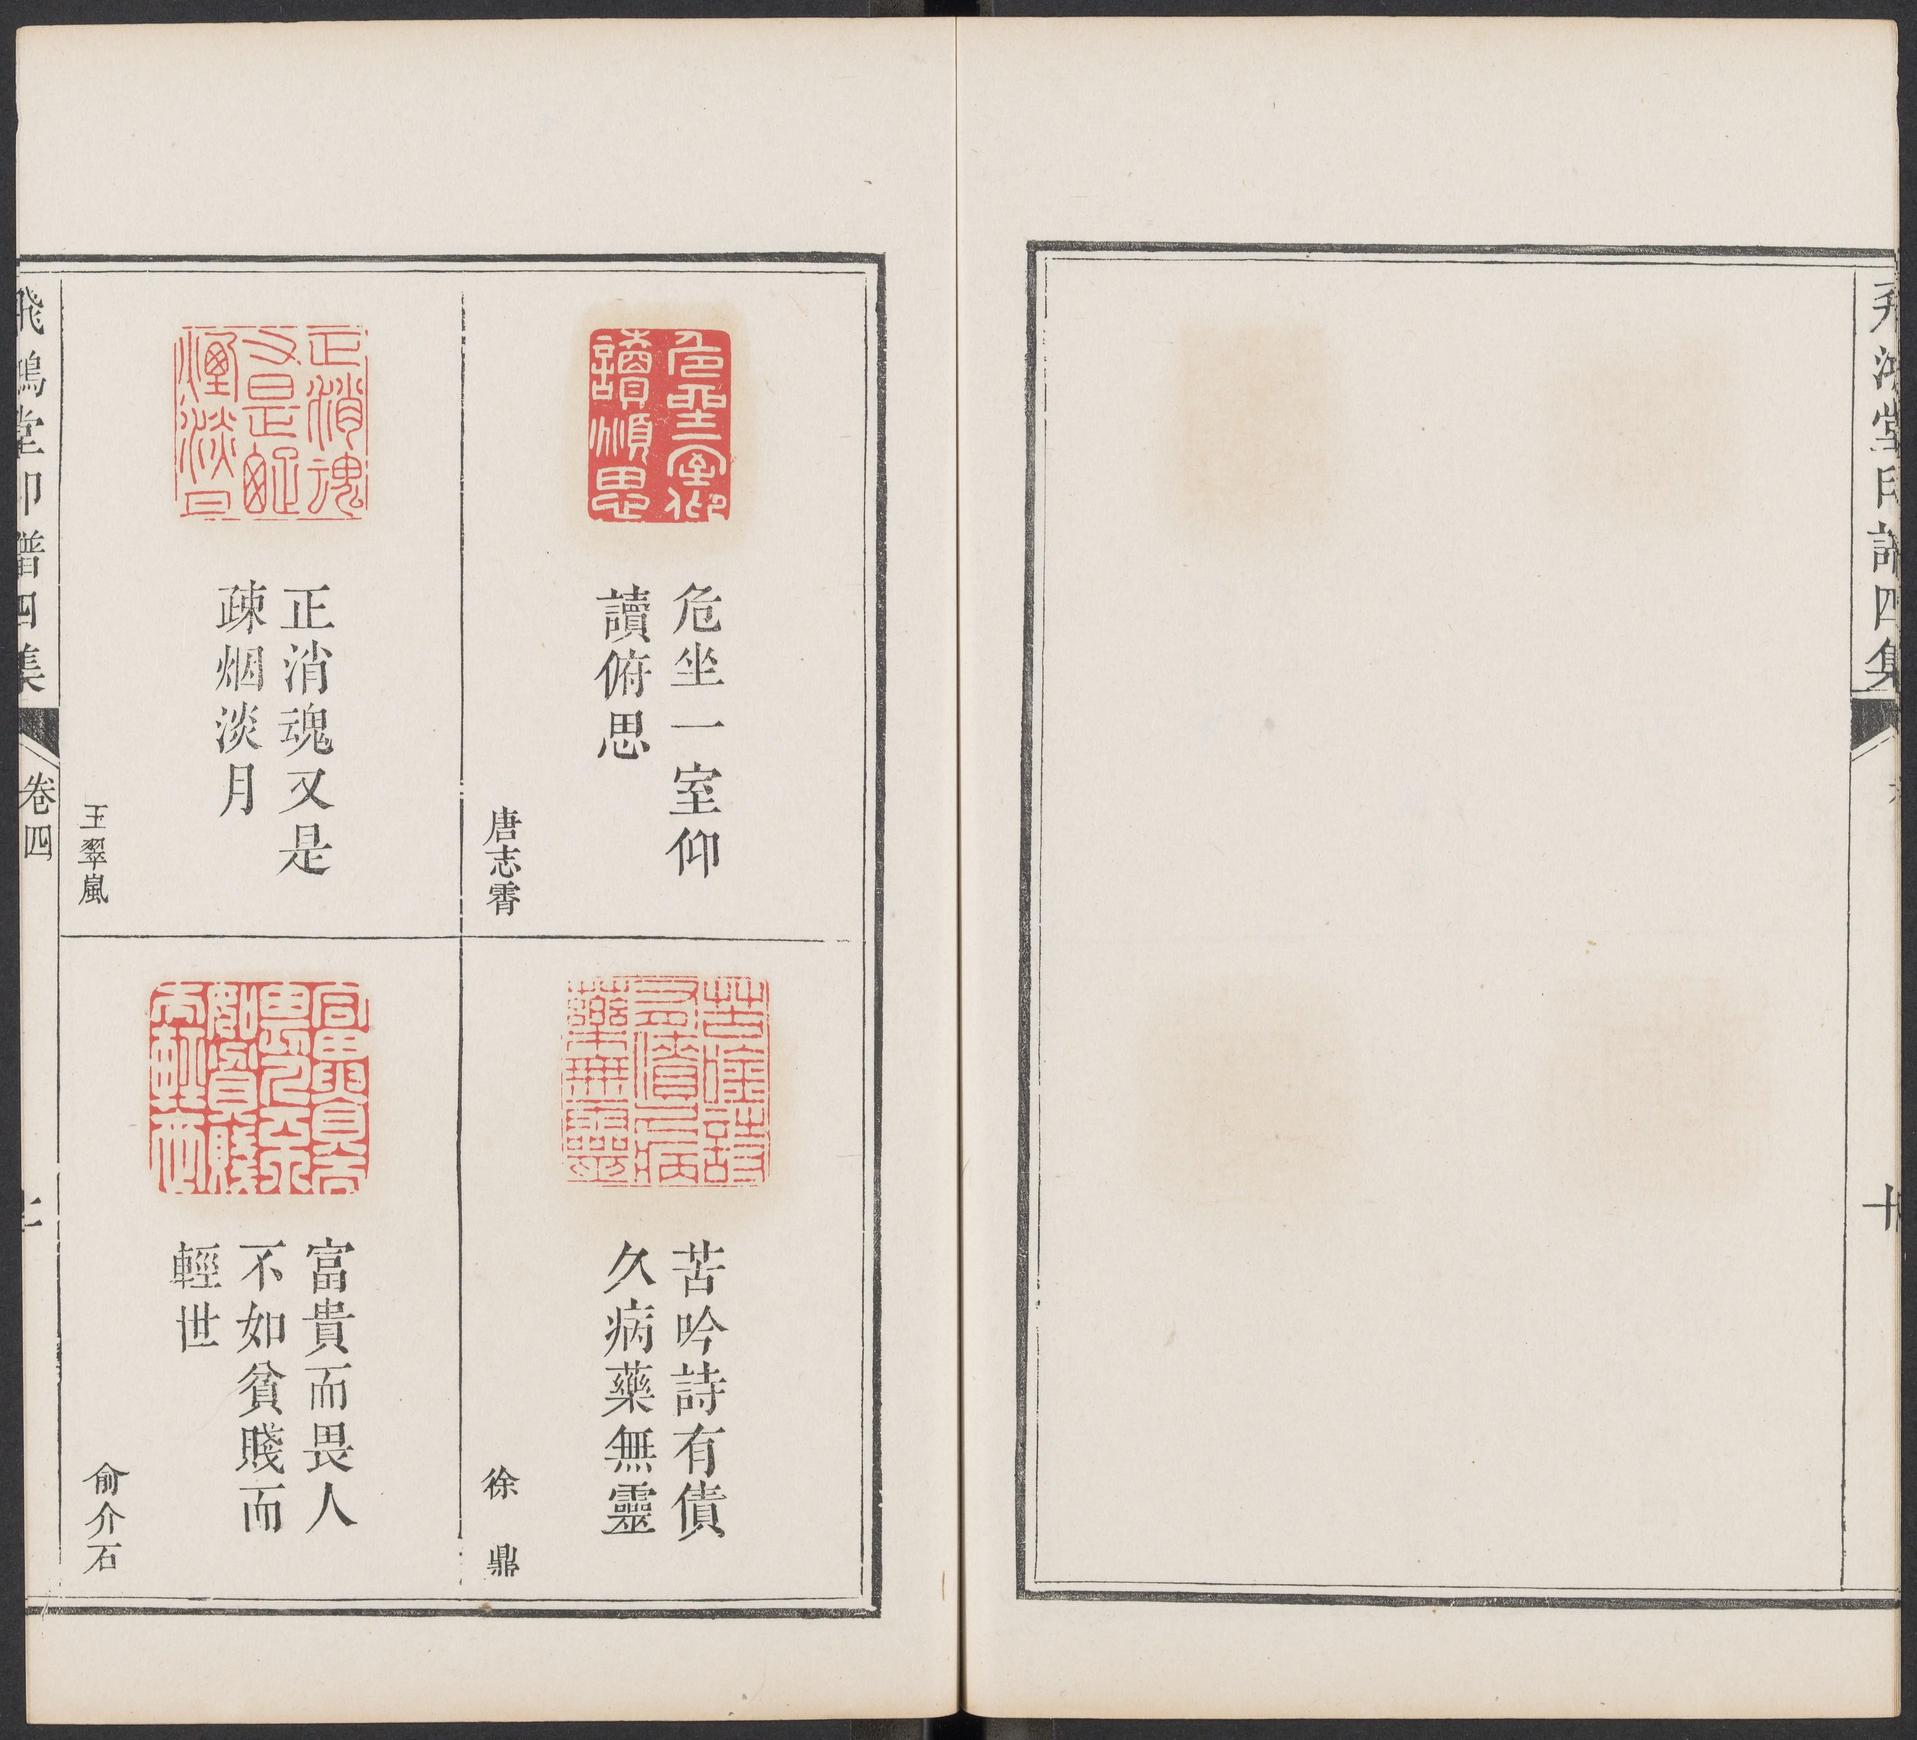 飛鴻堂印譜四集
十
危坐一室仰
讀俯思
唐志霄
苦吟詩有債
久病藥無靈
徐鼎
正消魂又是
疎烟淡月
王翠嵐
富貴而畏人
不如貧賤而
輕世
俞介石
飛鴻堂印譜四集
卷四